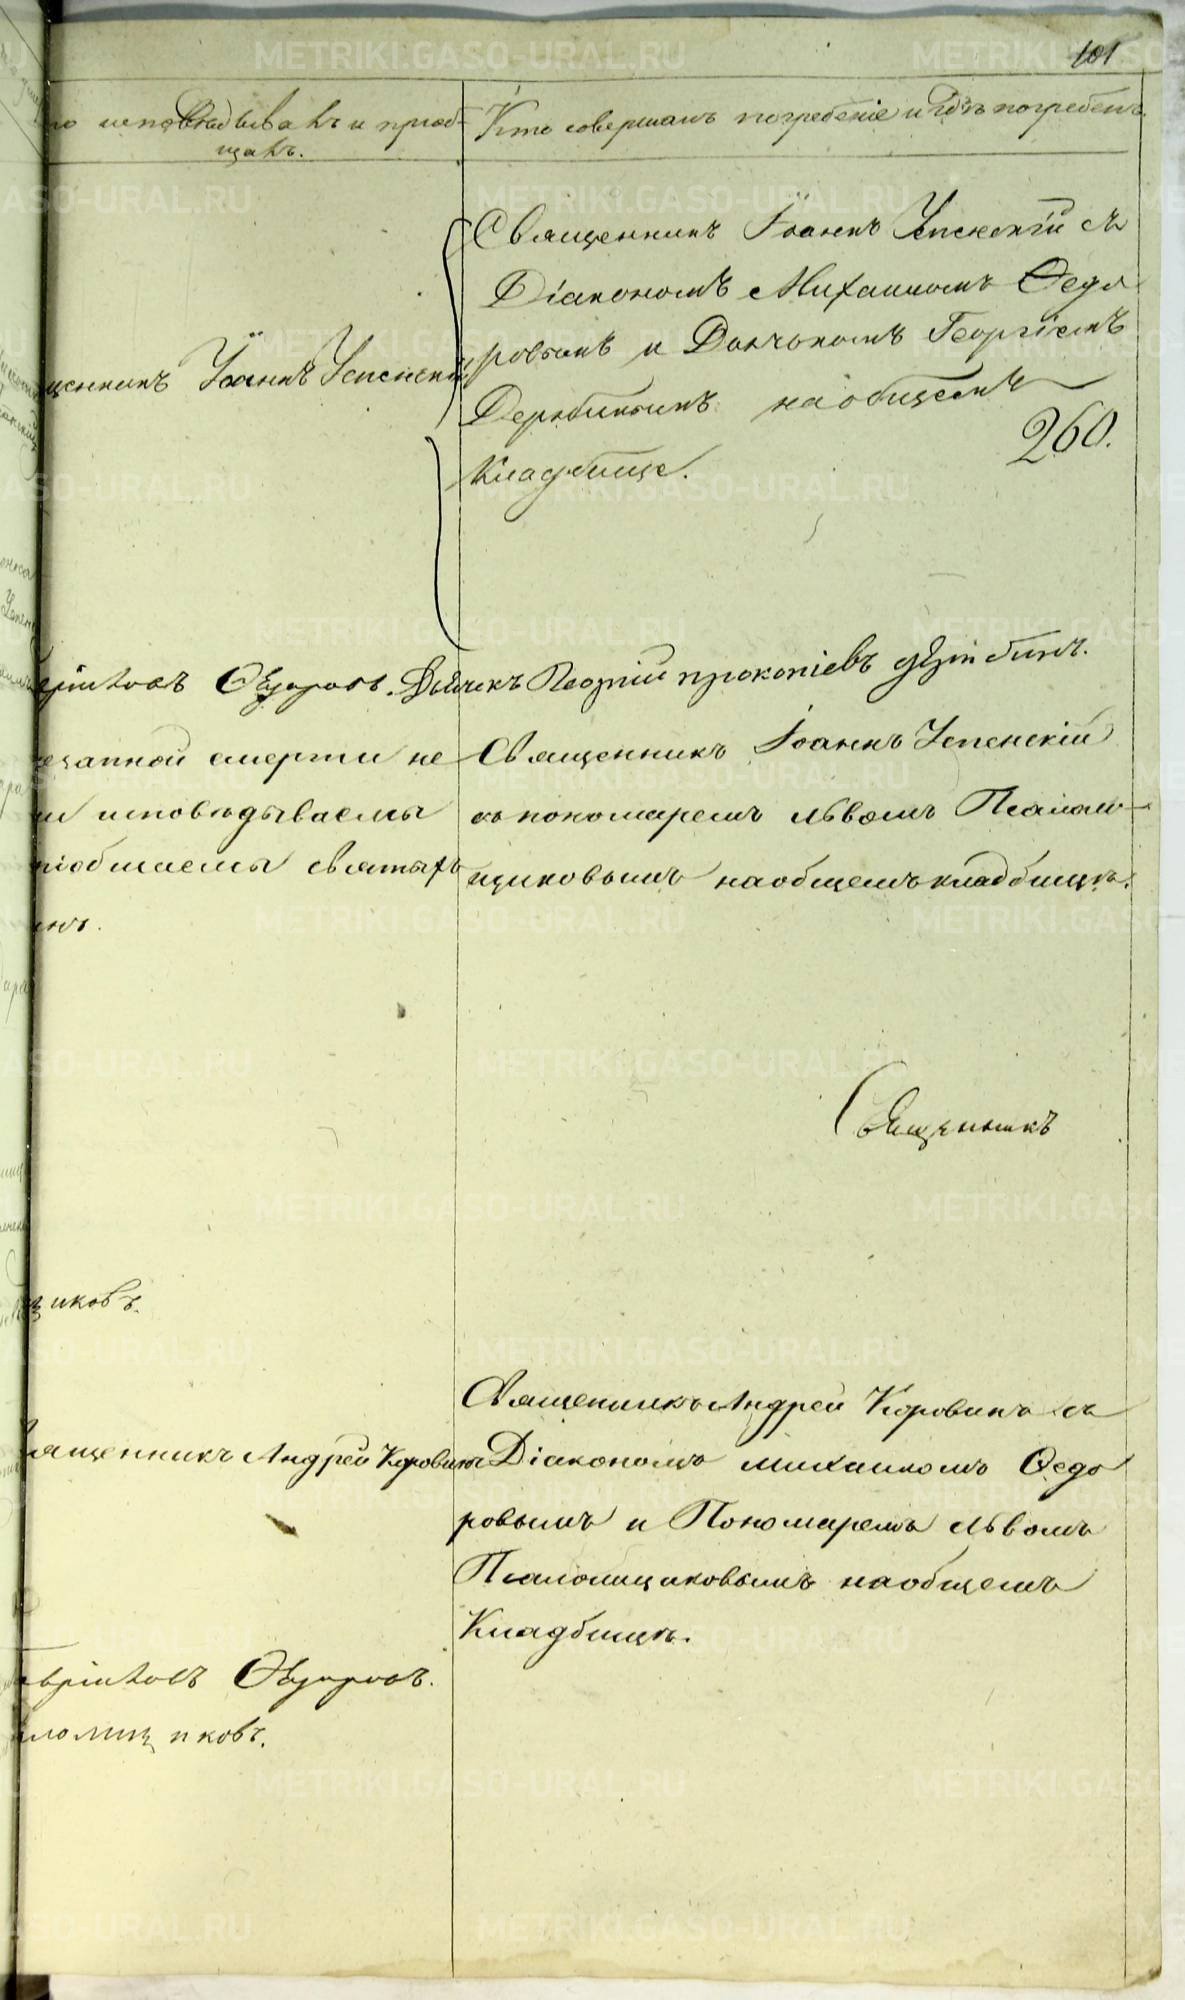 101
исповѣдывалъ и пріоб-
щалъ.
Кто совершалъ погребеніе и гдѣ погребенъ.
Священникъ Іоаннъ Успенскій съ
Діакономъ Михаиломъ Ѳедо
ровымъ и Дьячькомъ Георгіемъ
Дерябинымъ на общемъ
Кладбище.
260.
щенникъ Іоаннъ Успенскій
Ѳедоровъ. Дьячекъ Георгій прокопіевъ дерябинъ.
езапной смерти не
и исповѣдываемы
ріобщаемы святыхъ
инъ.
Священникъ Іоаннъ Успенскій
съ пономаремъ Львомъ Псалом-
щиковымъ на общемъ кладбищѣ.
Священникъ
щиковъ.
вященникъ Андрей Коровинъ
Священникъ Андрей Коровинъ съ
Діакономъ михаиломъ Ѳедо
ровымъ и Пономаремъ Львомъ
Псаломщиковымъ на общемъ
Кладбищѣ.
авріиловъ Ѳедоровъ.
аломщиковъ.
METRIKI.GASO-URAL.RU